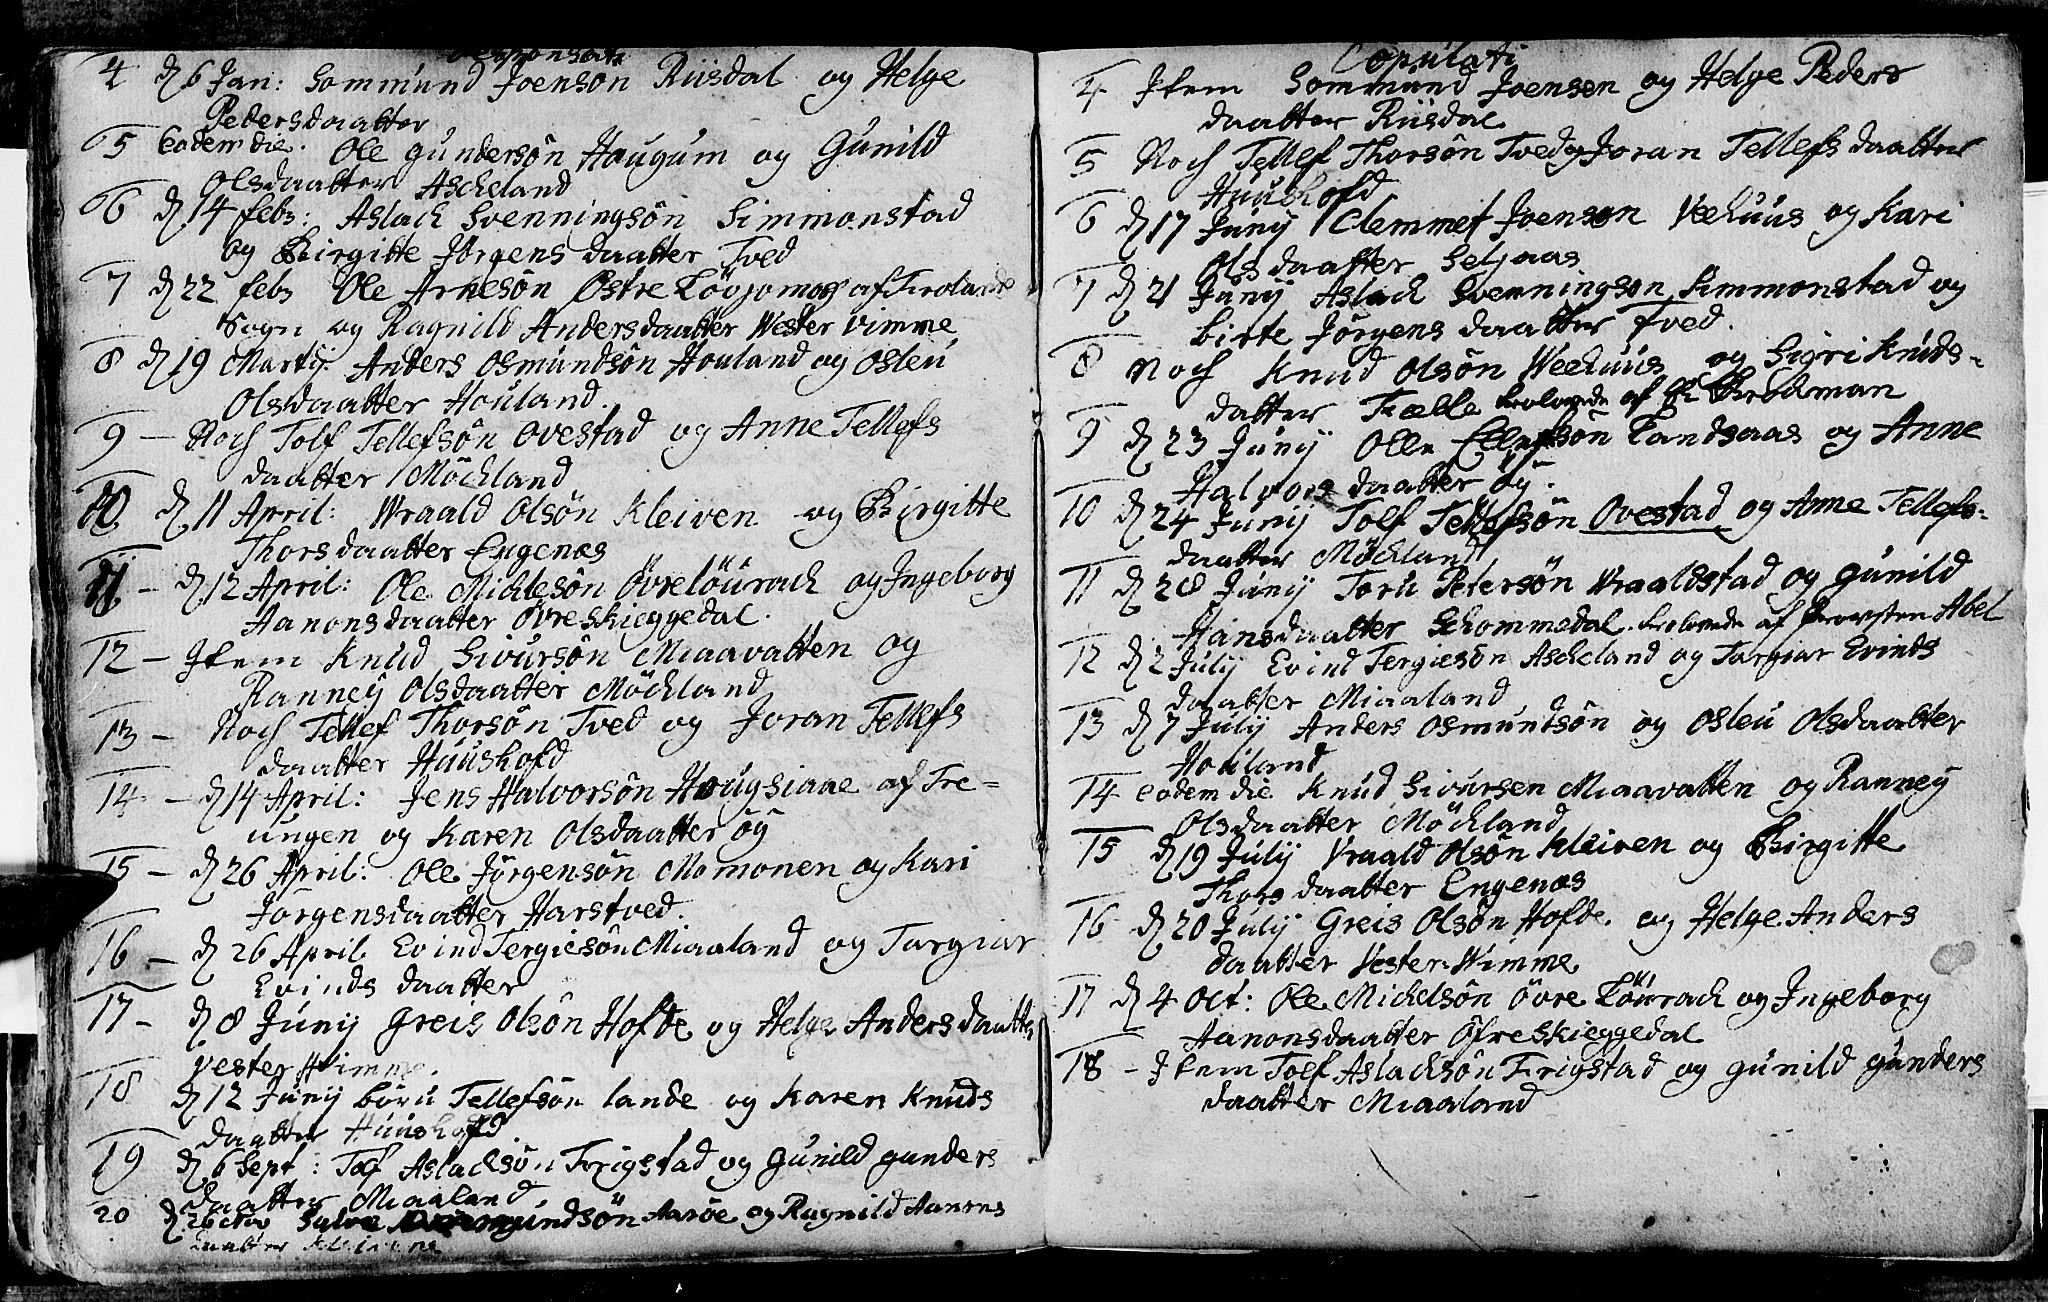 Desponsati
4 d 6 Jan: Sommund Joensøn Riisdal og Helge
Pedersdaatter
5 Eodem die. Ole Gundersøn Haugum og Gunild
Olsdaatter Ascheland
6 d 14 febr: Aslach Svenningsøn Simmonstad
og Birgitte Jørgens daatter Tved
7 d 22 febr Ole Arnesøn Østre Løvjomos af Frolands
Sogn og Ragnild Andersdaatter Wester Vimme
8 d 19 Martij Anders Osmundsøn Houland og Osleu
Olsdaatter Houland.
9 – Noch Tolf Tellefsøn Ovestad og Anne Tellefs
daatter Möckland
10 d 11 April: Wraald Olsøn Kleiven og Birgitte
Thorsdaatter Engenæs
11 – d 12 April: Ole Michelsøn Øvreløurach og Ingeborg
Aanonsdaatter Øvreskieggedal.
12 – Item Knud Sivursøn Miaavatten og
Ranney Olsdaatter Möckland
13 – Noch Tellef Thorsøn Tved og Joran Tellefs
daatter Huushofd
14 – d 14 April: Jens Halvorsøn Hougsiaae af Tre=
ungen og Karen Olsdaatter Øy
15 – d 26 April: Ole Jörgensøn Momonen og Kari
Jörgensdaatter Harstved.
16 – d 26 April Evind Tergiesøn Miaaland og Targiar
Evinds daatter
17 – d 8 Junij Greis Olsøn Hofde og Helge Anders daatter
Vester Wimme.
18 d 12 Junij Börü Tellefsøn lande og Karen Knuds
daatter Huushofd
19 d 6 Sept: Tolf Aslachsøn Frigstad og Gunild Gunders
daatter Miaaland
20 d 26 Nov Salve mundsøn Aasöe og Ragnild Aanens
daatter
Copulati
4 Item Sommund Joensen og Helge Peders
daatter Riisdal
5 Noch Tellef Thorsøn Tved og Joran Tellefs daatter
Huushofd
6 d 17 Junij Clemmet Joensøn Veehuus og Kari
Olsdaatter Seljaas
7 d 21 Junij Aslach Svenningsøn Simmonstad og
Birte Jörgens daatter Tved.
8 Noch Knud Olsøn Weehuus og Sigri Knuds-
datter Fælle trolovede af Hr Brockman
9 d 23 Junij Olle Ellefsøn Landsaas og Anne
Halvors daatter Øy.
10 d 24 Junij Tolf Tellefsøn Ovestad og Anne Tellefs-
daatter Möckland
11 d 28 Junij Torü Petersøn Wraaldstad og Gunild
Hansdaatter Schommedal. trolovede af Provsten Abel
12 d 2 Julij Evind Tergiesøn Ascheland og Targiar Evinds
daatter Miaaland
13 d 7 Julij Anders Osmundsøn og Osleu Olsdaatter
Houland
14 eodem die Knud Sivursen Miaavatten og Ranney
Olsdaatter Möckland
15 d 19 Julij Vraald Olsøn Kleiven og Birgitte
Thorsdaatter Engenæs
16 d 20 Julij Greis Olsøn Hofde. og Helge Anders
daatter Vester-Wimme
17 d 4 Oct: Ole Michelsøn Øvre Løurach og Ingeborg
Aanonsdaatter Øfreskieggedal
18 – Item Tolf Aslachsøn Frigstad og Gunild Gunders
daatter Miaaland